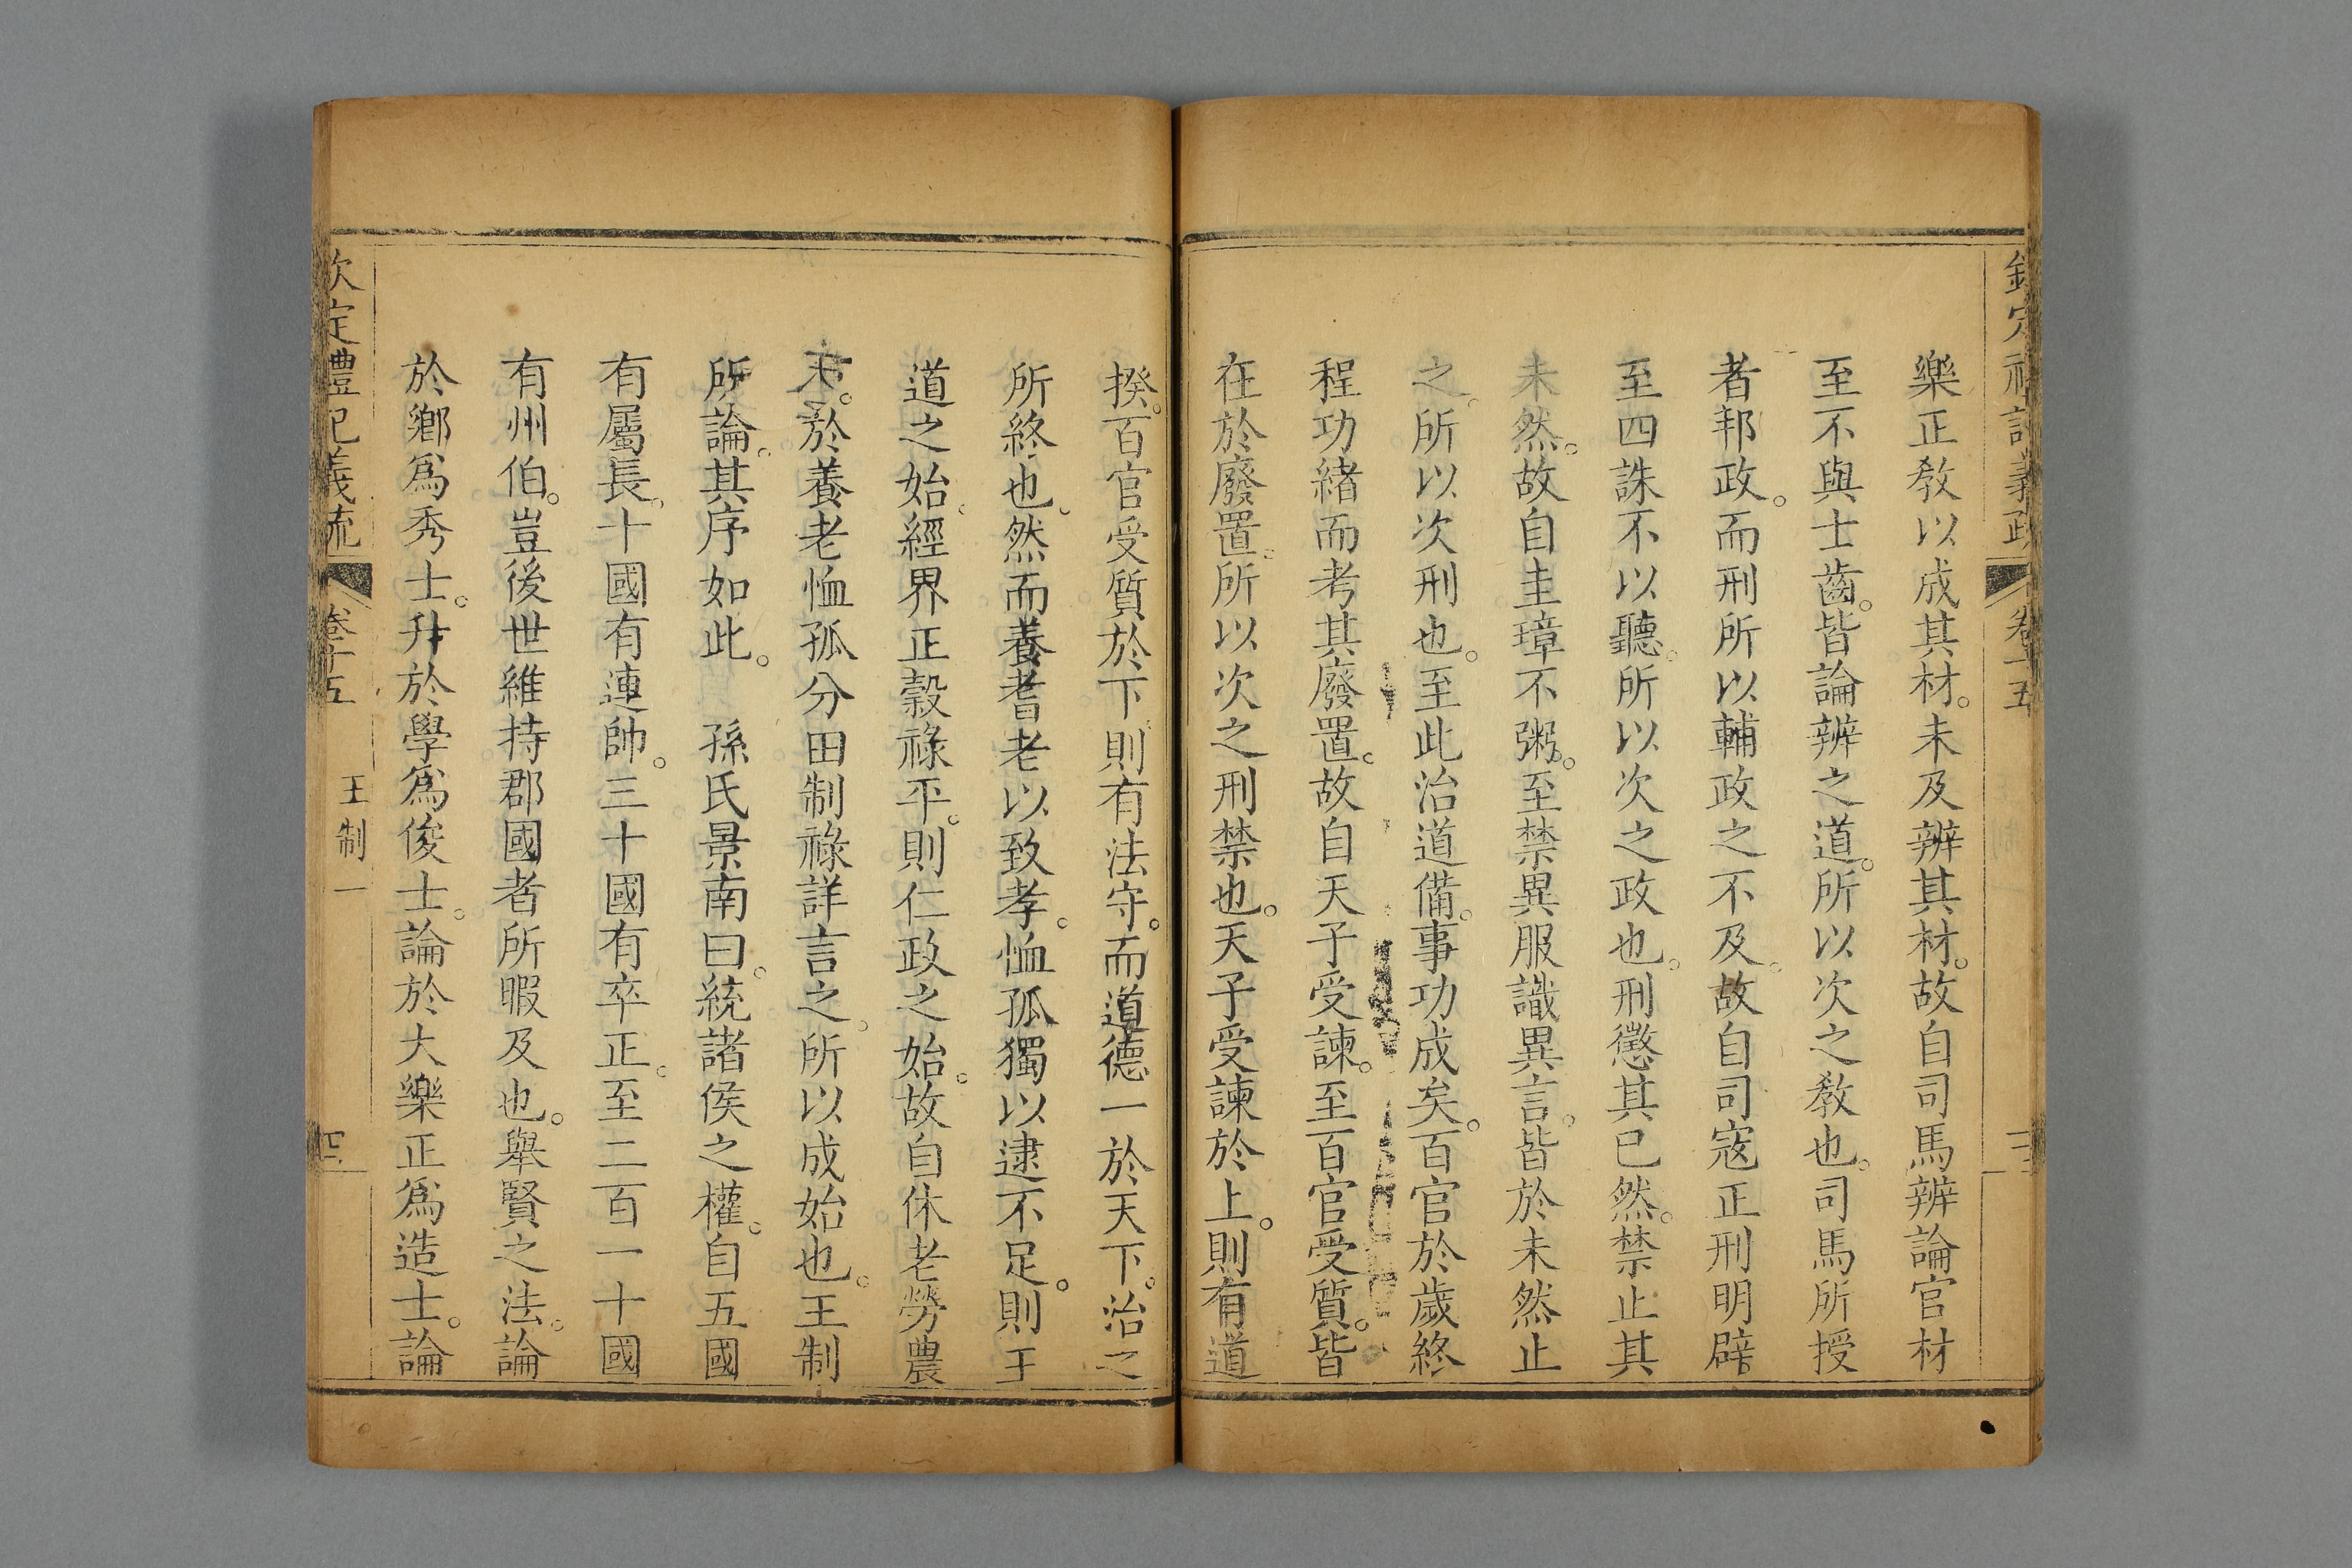 欽定禮記義疏 卷十五
樂正教以成其材。未及辨其材。故自司馬辨論官材
至不與士齒。皆論辨之道。所以次之教也。司馬所授
者邦政。而刑所以輔政之不及。故自司寇正刑明辟
至四誅不以聽。所以次之政也。刑懲其已然。禁止其
未然。故自圭璋不粥。至禁異服識異言。皆於未然止
之。所以次刑也。至此治道備。事功成矣。百官於歲終
程功緒而考其廢置。故自天子受諫。至百官受質。皆
在於廢置。所以次之刑禁也。天子受諫於上。則有道
揆。百官受質於下。則有法守。而道德一於天下。治之
所終也。然而養耆老以致孝。恤孤獨以逮不足。則王
道之始。經界正穀祿平。則仁政之始。故自休老勞農
於養老恤孤分田制祿詳言之。所以成始也。王制
所論。其序如此。 孫氏景南曰。統諸侯之權。自五國
有屬長。十國有連帥。三十國有卒正。至二百一十國
有州伯。豈後世維持郡國者所暇及也。舉賢之法。論
於鄉爲秀士。升於學爲俊士。論於大樂正爲造士。論
欽定禮記義疏 卷十五 王制一 四